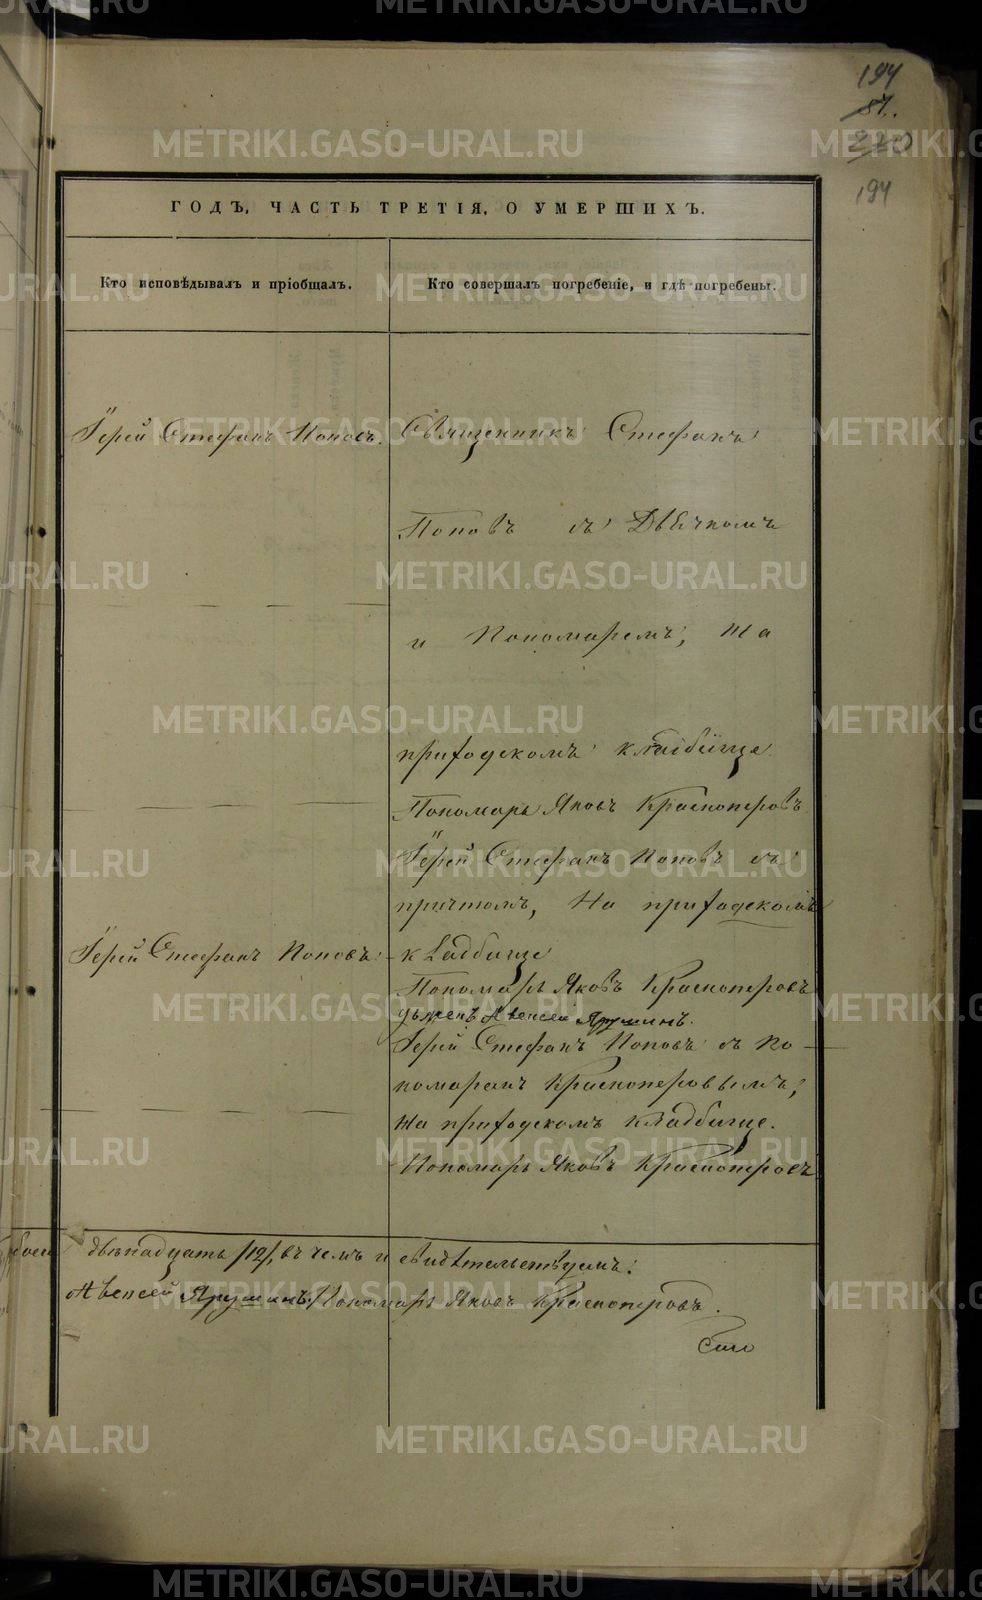 194
81.
220
194
ГОДЪ, ЧАСТЬ ТРЕТІЯ, О УМЕРШИХЪ.
Кто исповѣдывалъ и пріобщалъ.
Кто совершалъ погребеніе, и гдѣ погребены.
Іерей Стефанъ Поповъ.
Священникъ Стефанъ
Поповъ съ Дьячкомъ
и Пономаремъ, на
приходскомъ кладбище
Пономарь Яковъ Красноперовъ
Іерей Стефанъ Поповъ съ
причтомъ, на приходскомъ
Іерей Стефанъ Поповъ
кладбище
Пономарь Яковъ Красноперовъ
Алексей Ярушинъ.
Іерей Стефанъ Поповъ съ по-
номаремъ Красноперовымъ,
на приходскомъ кладбище.
Пономарь Яковъ Красноперовъ
двенадцать /12/, въ чемъ и свидѣтельствуемъ:
Алексей Ярушинъ. Пономарь Яковъ Красноперовъ.
METRIKI.GASO-URAL.RU